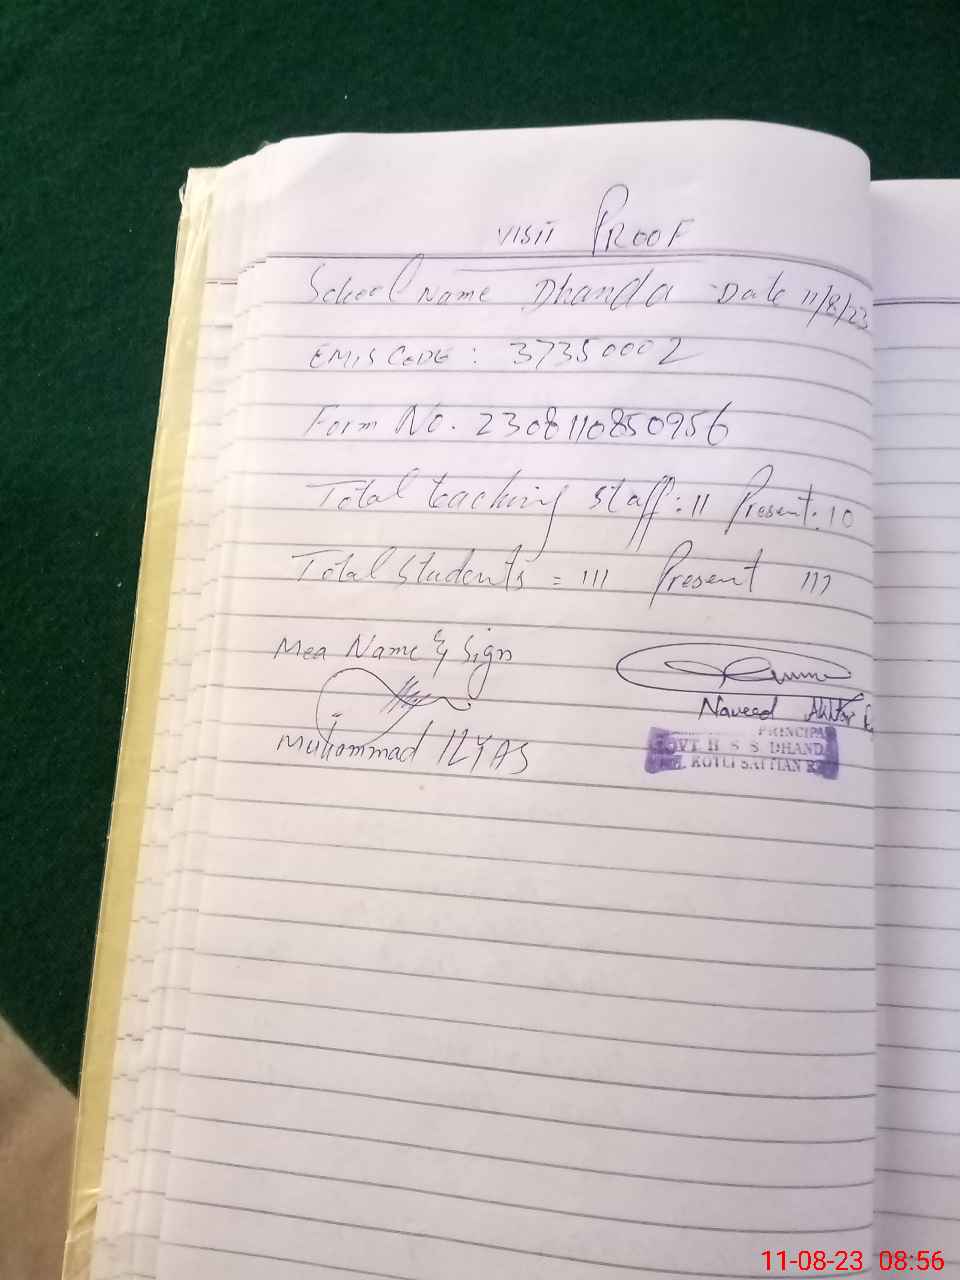 VISIT PROOF
School Name Dhanda Date 11/8/23
EMIS CODE : 37350002
Form No. 2308110850956
Total teaching staff: 11 Present: 10
Total Students = 111 Present 111
Mea Name & Sign
Muhammad ILYAS
Naveed Akhtar
PRINCIPAL
GOVT H S S DHANDA
KOTLI SATTIAN
11-08-23 08:56